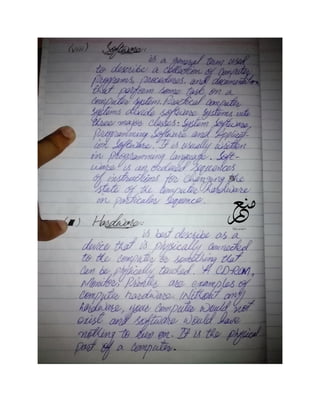 (viii) Software:-
is a general term used
to describe a collection of computer
programs, procedures, and documentation
that perform some task on a
computer system. Practical computer
systems divide software systems into
three major classes: System software,
programming software and Applicat-
ion software. It is usually written
in programming language. Soft-
ware is an ordered sequences
of instructions for changing the
state of the computer hardware
in particular sequence.
Hardware:-
is best describe as a
device that is physically connected
to the computer or something that
can be physically touched. A CD-ROM,
Monitor, Printer are examples of
computer hardware. Without any
hardware, your computer would not
exist and software would have
nothing to run on. It is the physical
part of a computer.